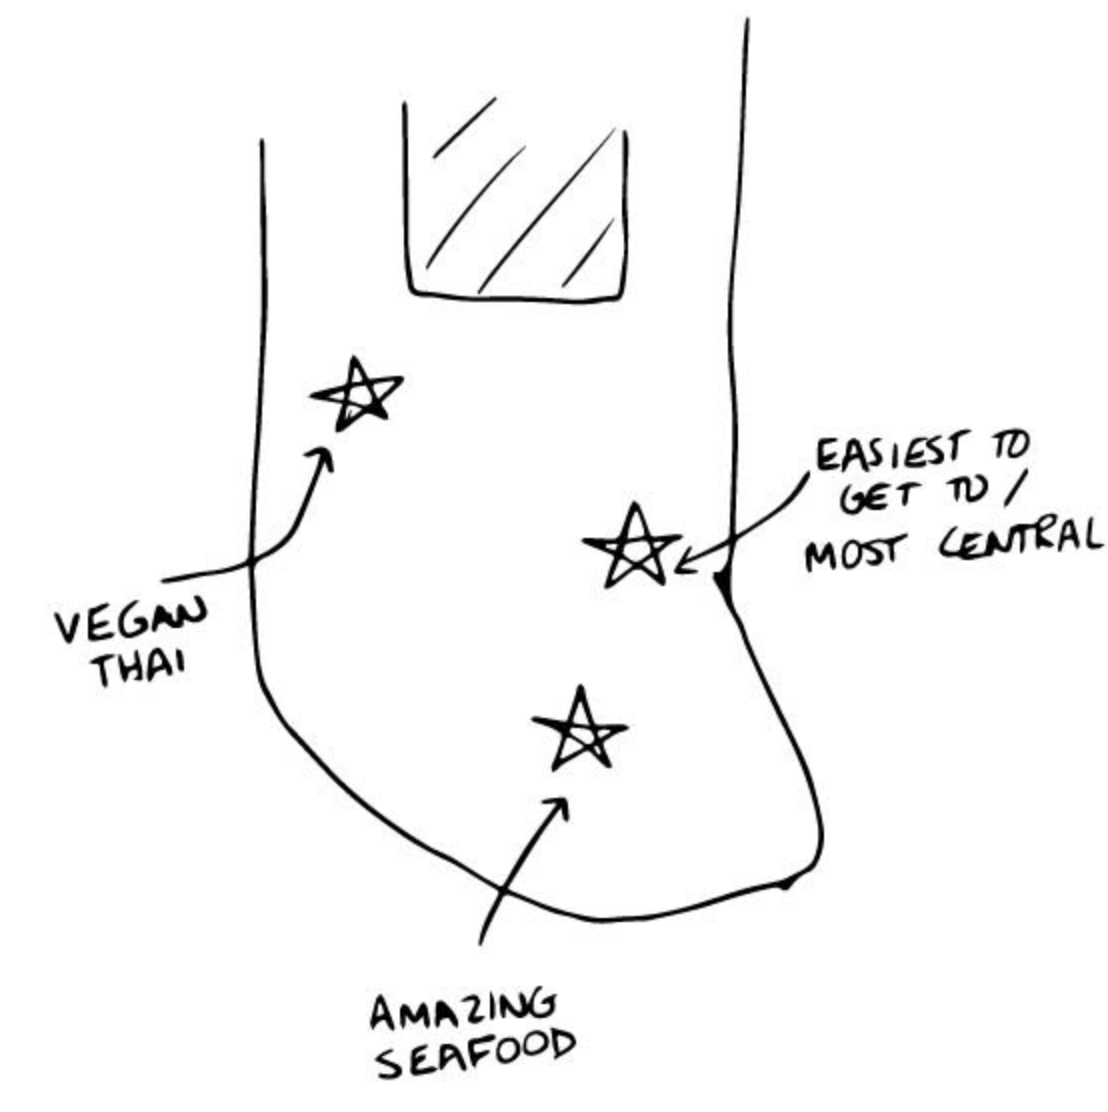 EASIEST TO
GET TO /
MOST CENTRAL
VEGAN
THAI
AMAZING
SEAFOOD